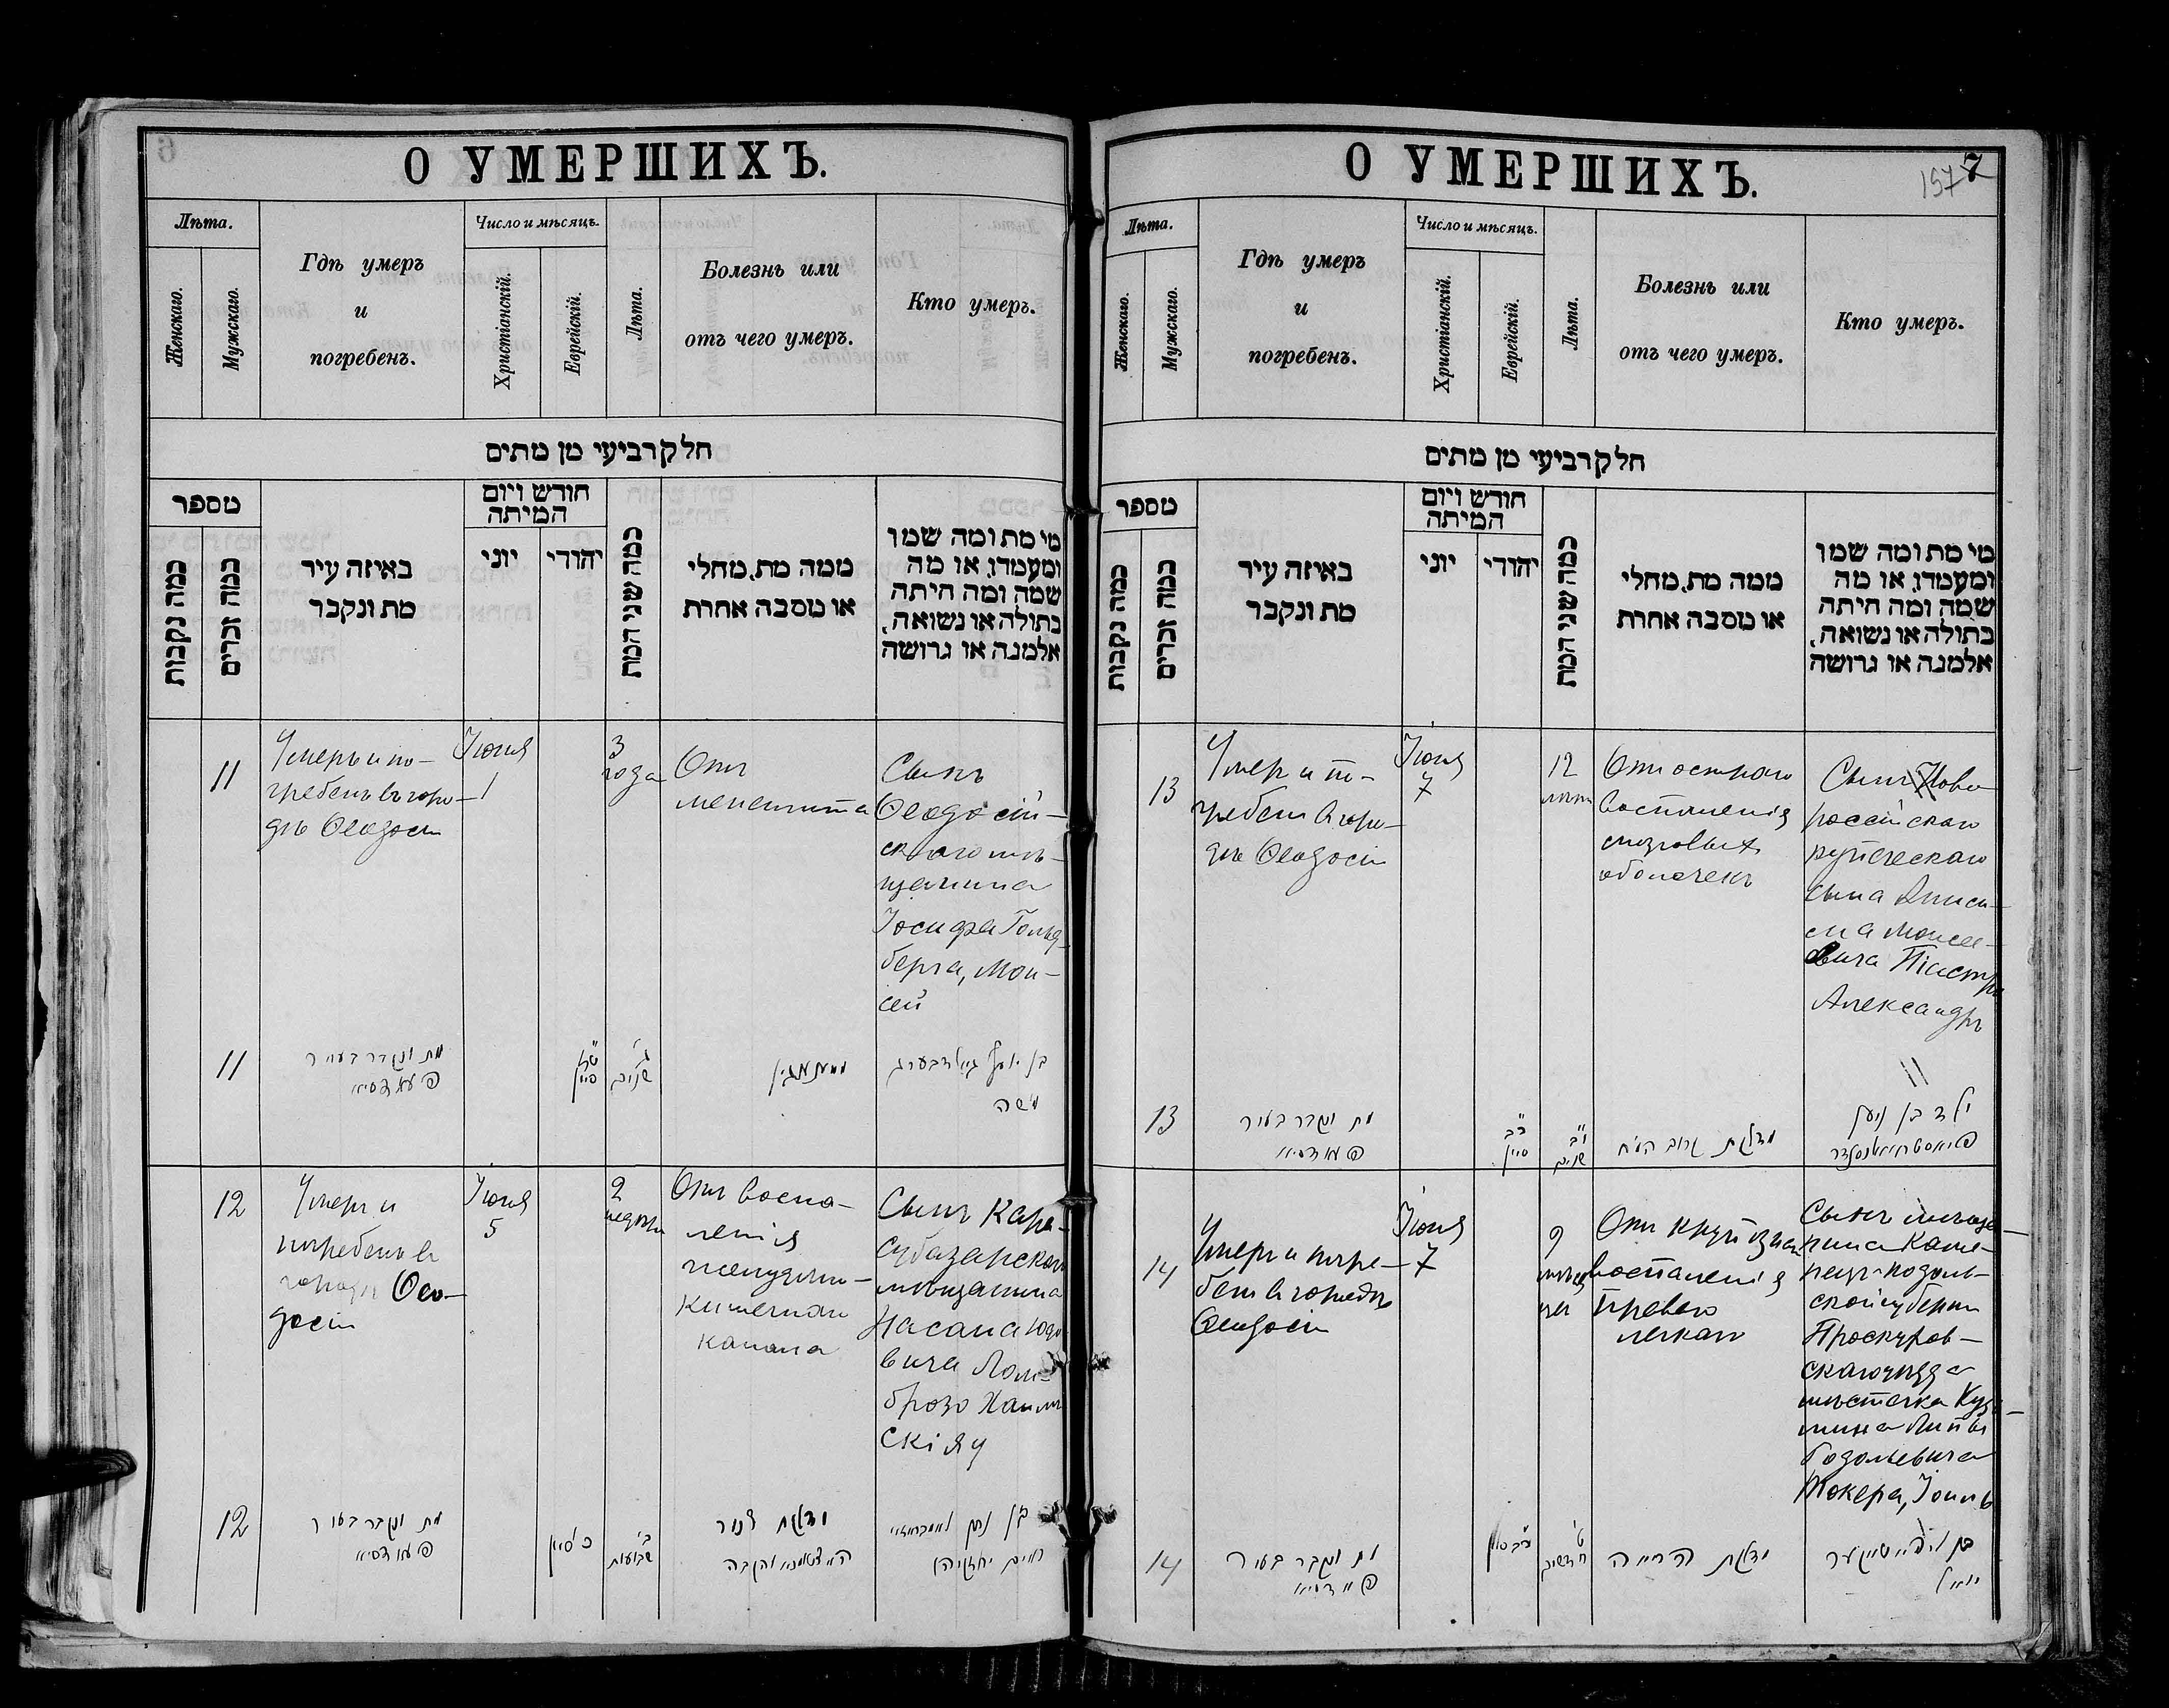 О УМЕРШИХЪ.
Лѣта.
Женскаго.
Мужскаго.
Гдѣ умеръ
и
погребенъ.
Число и мѣсяцъ.
Христіанскій.
Еврейскій.
Лѣта.
Болезнь или
отъ чего умеръ.
Кто умеръ.
חלק רביעי מן מתים
מספר
כמה נקבות
כמה זכרים
באיזה עיר
מת ונקבר
חודש ויום
המיתה
יוני
יהודי
כמה שני המת
ממה מת, מחלי
או מסבה אחרת
מי מת ומה שמו
ומעמדו, או מה
שמה ומה היתה
בתולה או נשואה,
אלמנה או גרושה
11
Умеръ и по-
гребенъ въ горо-
дѣ Ѳеодосіи
Іюня
1
3
года
Отъ
менингита
Сынъ
Ѳеодосій-
скаго мѣ-
щанина
Іосифа Гольд-
берга, Мои-
сей
11
מת ונקבר בעיר
שנים
בן יוסף גאלדבערג
משה
12
Умеръ и
погребенъ въ
городѣ Ѳео-
досіи
Іюня
5
2
недѣли
Отъ воспа-
ленія
желудочно-
кишечнаго
канала
Сынъ Кара-
субазарскаго
мѣщанина
Насана Юдо-
вича Лом-
брозо Хаимъ
12
מת ונקבר בעיר
סיון
ב'
שבועות
דלקת
בן נתן
חיים
О УМЕРШИХЪ.
157 7
Лѣта.
Женскаго.
Мужскаго.
Гдѣ умеръ
и
погребенъ.
Число и мѣсяцъ.
Христіанскій.
Еврейскій.
Лѣта.
Болезнь или
отъ чего умеръ.
Кто умеръ.
חלק רביעי מן מתים
מספר
כמה נקבות
כמה זכרים
באיזה עיר
מת ונקבר
חודש ויום
המיתה
יוני
יהודי
כמה שני המת
ממה מת, מחלי
או מסבה אחרת
מי מת ומה שמו
ומעמדו, או מה
שמה ומה היתה
בתולה או נשואה,
אלמנה או גרושה
13
Умеръ и по-
гребенъ въ горо-
дѣ Ѳеодосіи
Іюня
7
12
лѣтъ
Отъ остраго
воспаленія
мозговыхъ
оболочекъ
Сынъ Ново
россійскаго
купеческаго
сына
Моисе-
евича
Александръ
13
מת ונקבר בעיר
סיון
שנים
דלקת קרום המח
14
Умеръ и погре-
бенъ въ городѣ
Ѳеодосіи
Іюня
7
9
мѣся
цев
Отъ крупознаго
воспаленія
праваго
легкаго
Сынъ мѣща-
нина Каме-
нецъ-Подоль-
ской губерніи
Проскуров-
скаго уѣзда
мѣстечка Кузь-
мина
Токера, Іоиль
14
מת ונקבר בעיר
ט'
חדשים
דלקת הריאה
יואל